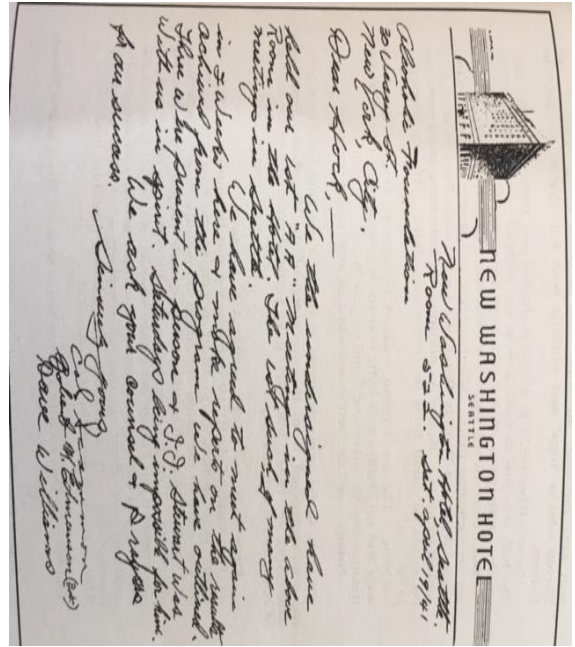 NEW WASHINGTON HOTEL
SEATTLE
New Washington Hotel, Seattle.
Room 522. Sat. April 19/41
Alcoholic Foundation
30 Vesey St.
New York, City.
Dear Hock, —
We the undersigned have
held our 1st "AA" Meeting in the above
Room in the Hotel. The 1st such, of many
meetings in Seattle.
We have agreed to meet again
in 2 weeks here & make reports on the results
achieved from the program We have outlined.
Three were present in person & J.D. Stewart was
with us in spirit. Saturdays being impossible for him.
We ask your counsel & prayers
for our success.
Sincerely yours
Dave Williams